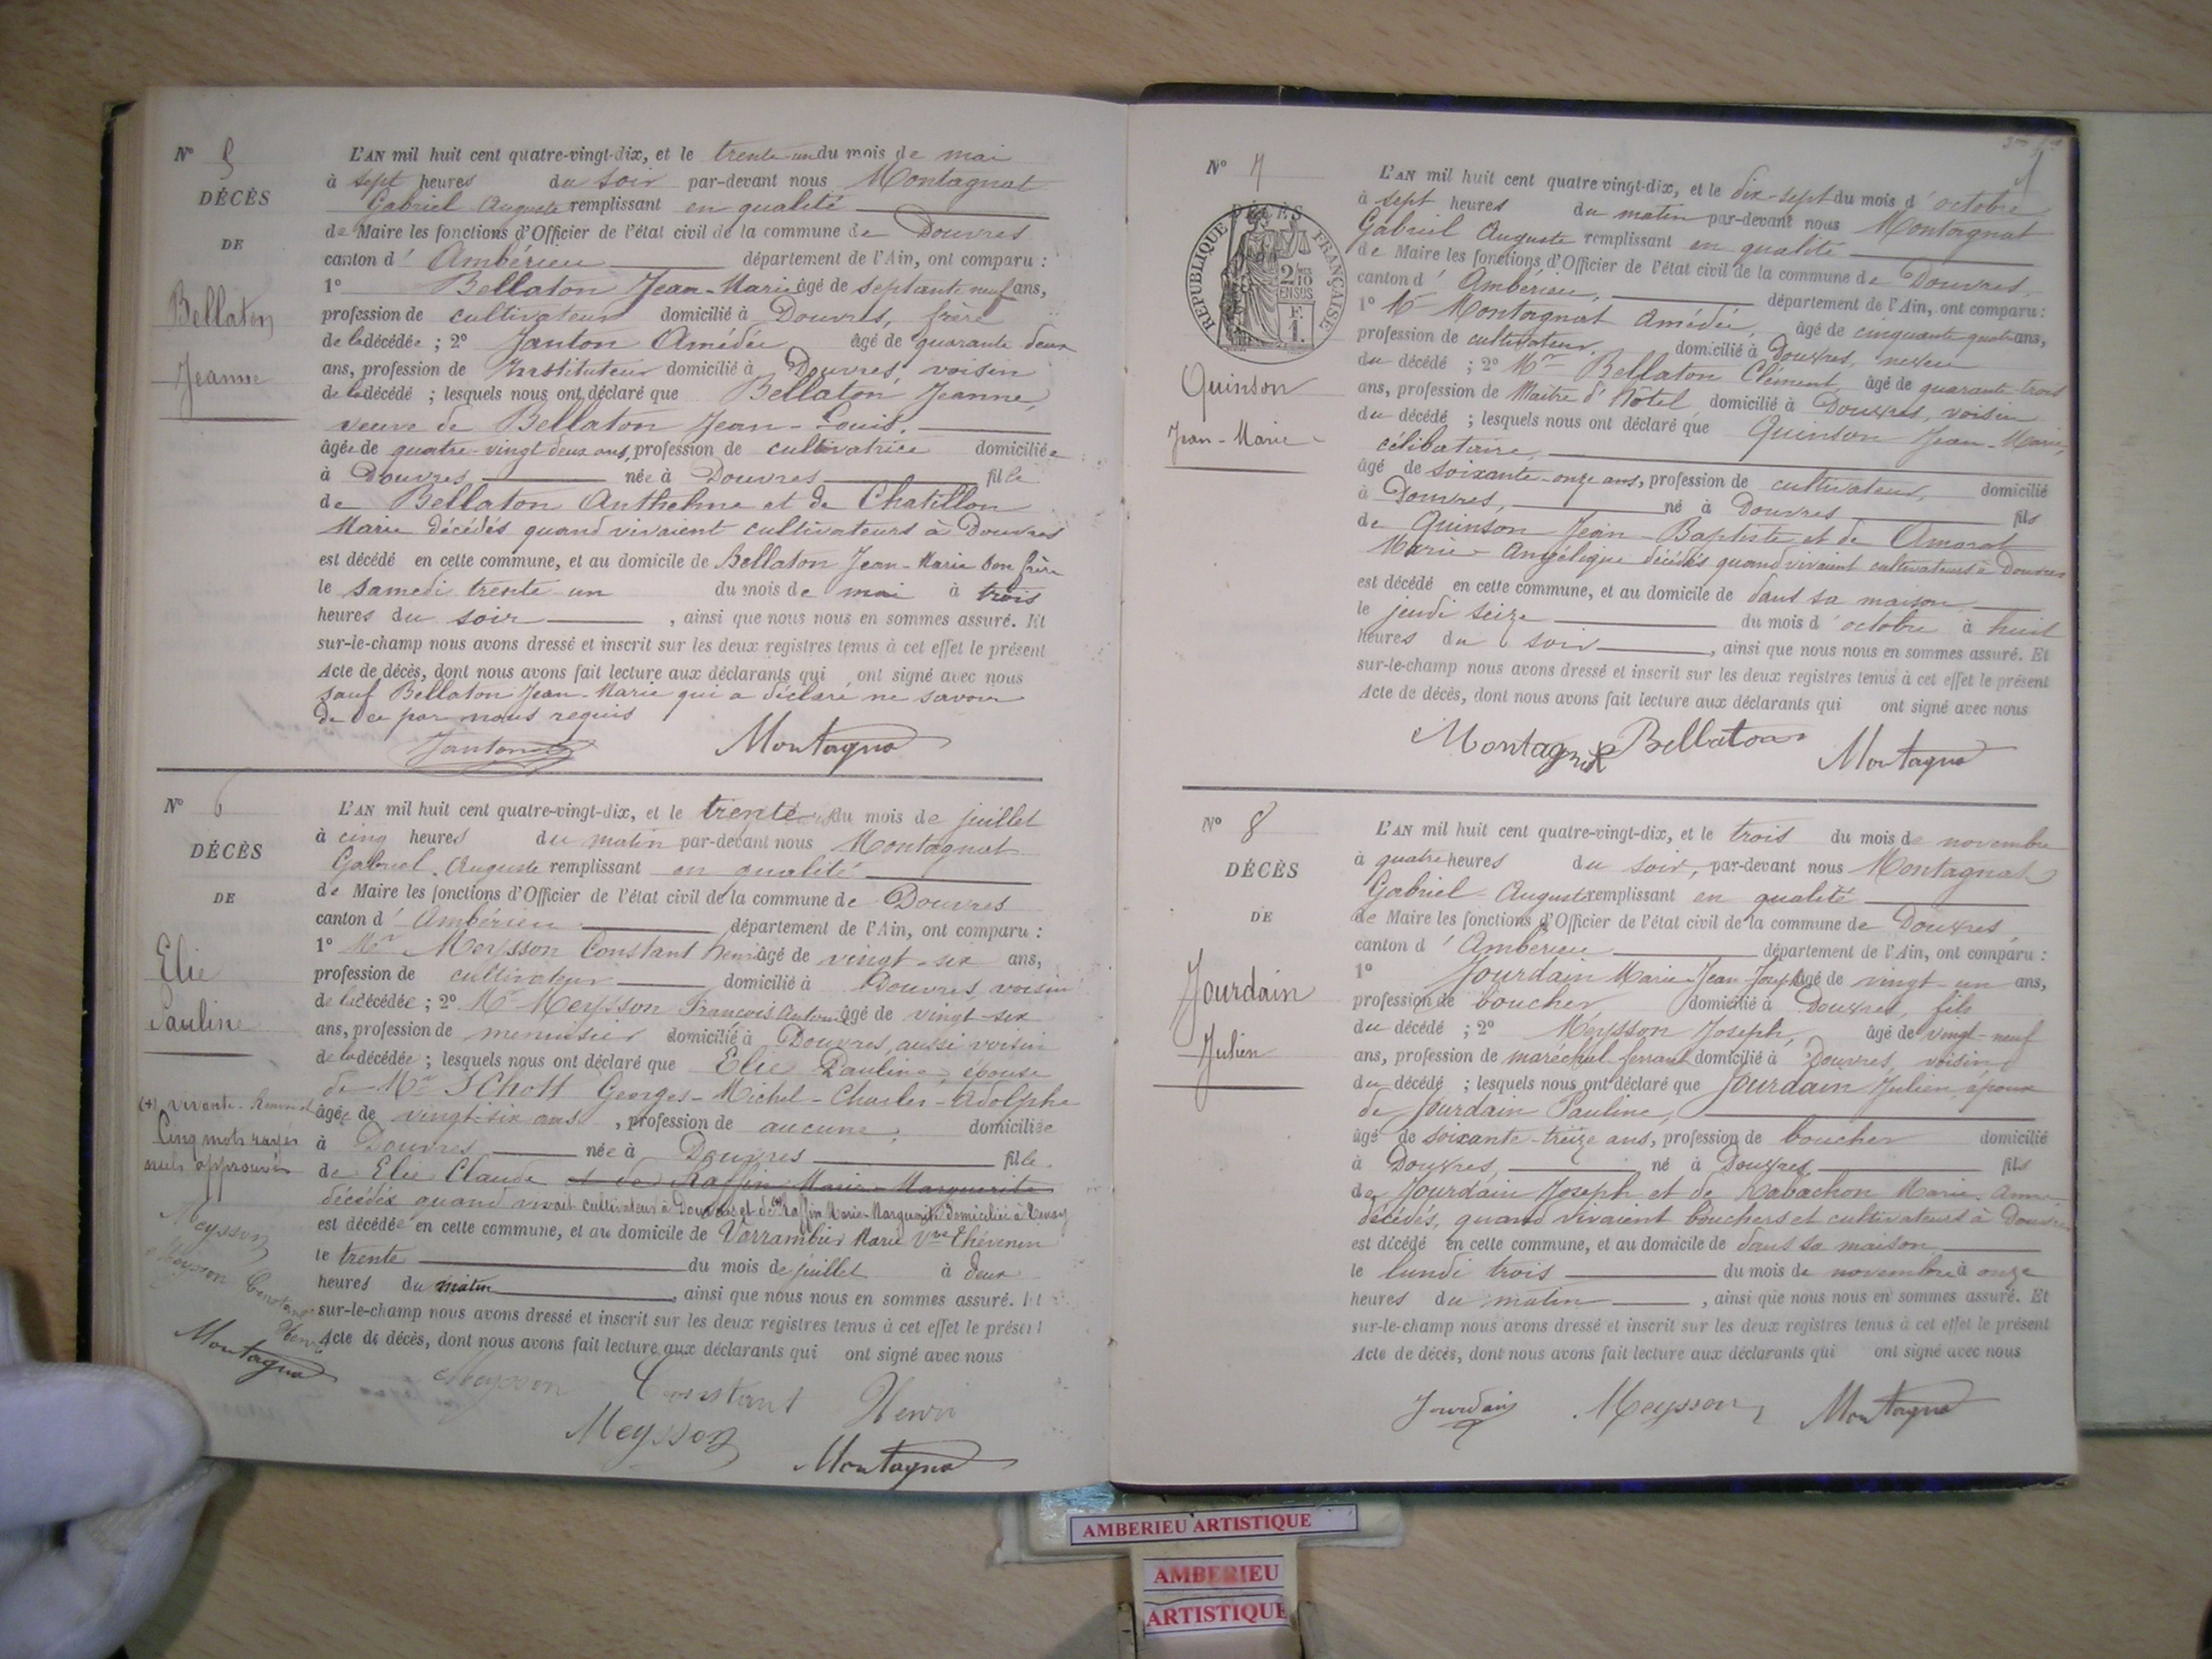 N° 5
DÉCÈS
DE
Bellaton
Jeanne
L'AN mil huit cent quatre-vingt-dix, et le trente-un du mois de mai
à sept heures du soir par-devant nous Montagnat
Gabriel Auguste remplissant en qualité
de Maire les fonctions d'Officier de l'état civil de la commune de Douvres
canton d' Ambérieu département de l'Ain, ont comparu :
1° Bellaton Jean-Marie âgé de septante neuf ans,
profession de cultivateur domicilié à Douvres, frère
de la décédée ; 2° Janton Amédée âgé de quarante deux
ans, profession de Instituteur domicilié à Douvres, voisin
de la décédé ; lesquels nous ont déclaré que Bellaton Jeanne,
veuve de Bellaton Jean-Louis.
âgée de quatre-vingt deux ans, profession de cultivatrice domiciliée
à Douvres née à Douvres fille
de Bellaton Anthelme et de Chatillon
Marie décédés quand vivaient cultivateurs à Douvres
est décédé en cette commune, et au domicile de Bellaton Jean-Marie son frère
le samedi trente-un du mois de mai à trois
heures du soir , ainsi que nous nous en sommes assuré. Et
sur-le-champ nous avons dressé et inscrit sur les deux registres tenus à cet effet le présent
Acte de décès, dont nous avons fait lecture aux déclarants qui ont signé avec nous
sauf Bellaton Jean-Marie qui a déclaré ne savoir
de ce par nous requis
Janton Montagnat
N° 6
DÉCÈS
DE
Elie
Pauline
L'AN mil huit cent quatre-vingt-dix, et le trente du mois de juillet
à cinq heures du matin par-devant nous Montagnat
Gabriel Auguste remplissant en qualité
de Maire les fonctions d'Officier de l'état civil de la commune de Douvres
canton d' Ambérieu département de l'Ain, ont comparu :
1° Mr Meysson Constant Henri âgé de vingt-six ans,
profession de cultivateur domicilié à Douvres, voisin
de la décédée ; 2° Mr Meysson François Antoine âgé de vingt-six
ans, profession de menuisier domicilié à Douvres, aussi voisin
de la décédée ; lesquels nous ont déclaré que Elie Pauline, épouse
de Mr SChott Georges-Michel-Charles-Adolphe
âgée de vingt-six ans , profession de aucune, domiciliée
à Douvres née à Douvres fille
de Elie Claude et de Raffin Marie-Marguerite
décédés quand vivait cultivateur à Douvres et de (+) Raffin Marie-Marguerite domiciliée à
est décédée en cette commune, et au domicile de Varrambier Marie Vve Thévenin
le trente du mois de juillet à deux
heures du matin , ainsi que nous nous en sommes assuré. Et
sur-le-champ nous avons dressé et inscrit sur les deux registres tenus à cet effet le présent
Acte de décès, dont nous avons fait lecture aux déclarants qui ont signé avec nous
(+) vivante.
Cinq mots rayés
nuls approuvés
Meysson
Meysson Constant
Henri
Montagnat
Meysson Constant Henri
Meysson
Montagnat
N° 7
DÉCÈS
RÉPUBLIQUE FRANÇAISE
2 10
EN SUS
F.
1.
Quinson
Jean-Marie
L'AN mil huit cent quatre vingt-dix, et le dix-sept du mois d' octobre
à sept heures du matin par-devant nous Montagnat
Gabriel Auguste remplissant en qualité
de Maire les fonctions d'Officier de l'état civil de la commune de Douvres,
canton d' Ambérieu, département de l'Ain, ont comparu :
1° Mr Montagnat Amédée, âgé de cinquante quatre ans,
profession de cultivateur, domicilié à Douvres, neveu
du décédé ; 2° Mr Bellaton Clément, âgé de quarante-trois
ans, profession de Maître d'hôtel, domicilié à Douvres, voisin
du décédé ; lesquels nous ont déclaré que Quinson Jean-Marie,
célibataire,
âgé de soixante-onze ans, profession de cultivateur, domicilié
à Douvres, né à Douvres fils
de Quinson Jean-Baptiste et de Amarat
Marie-Angélique décédés quand vivaient cultivateurs à Douvres
est décédé en cette commune, et au domicile de dans sa maison
le jeudi seize du mois d' octobre à huit
heures du soir , ainsi que nous nous en sommes assuré. Et
sur-le-champ nous avons dressé et inscrit sur les deux registres tenus à cet effet le présent
Acte de décès, dont nous avons fait lecture aux déclarants qui ont signé avec nous
Montagnat Bellaton Montagnat
N° 8
DÉCÈS
DE
Jourdain
Julien
L'AN mil huit cent quatre-vingt-dix, et le trois du mois de novembre
à quatre heures du soir, par-devant nous Montagnat
Gabriel-Auguste remplissant en qualité
de Maire les fonctions d'Officier de l'état civil de la commune de Douvres
canton d' Ambérieu département de l'Ain, ont comparu :
1° Jourdain Marie-Jean-Joseph âgé de vingt-un ans,
profession de boucher domicilié à Douvres, fils
du décédé ; 2° Meysson Joseph, âgé de vingt-neuf
ans, profession de maréchal-ferrant domicilié à Douvres, voisin
du décédé ; lesquels nous ont déclaré que Jourdain Julien, époux
de Jourdain Pauline,
âgé de soixante-treize ans, profession de boucher domicilié
à Douvres, né à Douvres fils
de Jourdain Joseph et de Rabachon Marie-Anne
décédés, quand vivaient bouchers et cultivateurs à Douvres
est décédé en cette commune, et au domicile de dans sa maison
le lundi trois du mois de novembre à onze
heures du matin , ainsi que nous nous en sommes assuré. Et
sur-le-champ nous avons dressé et inscrit sur les deux registres tenus à cet effet le présent
Acte de décès, dont nous avons fait lecture aux déclarants qui ont signé avec nous
Jourdain Meysson Montagnat
AMBERIEU ARTISTIQUE
AMBERIEU
ARTISTIQUE